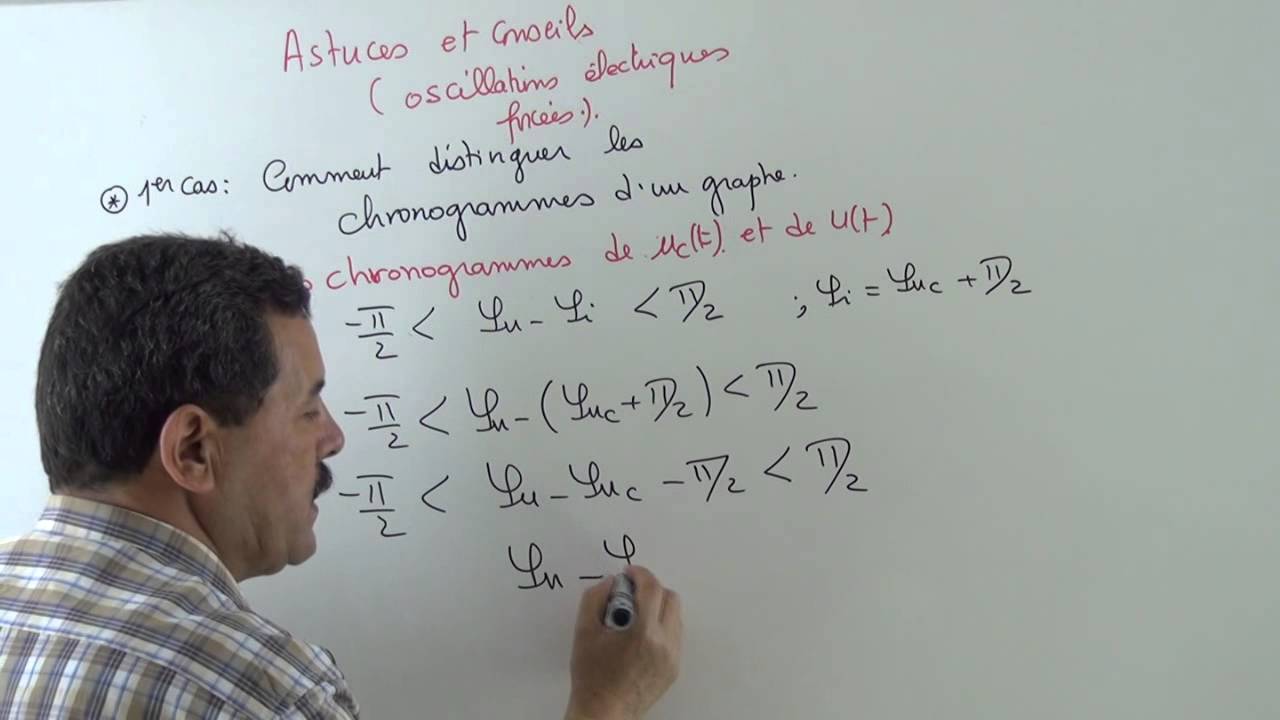 Astuces et Conseils
(oscillations électriques
forcées).
* 1er cas: Comment distinguer les
chronogrammes d'un graphe.
chronogrammes de uc(t) et de u(t)
-π/2 < φu - φi < π/2 ; φi = φuc + π/2
-π/2 < φu - (φuc + π/2) < π/2
-π/2 < φu - φuc - π/2 < π/2
φu - φ